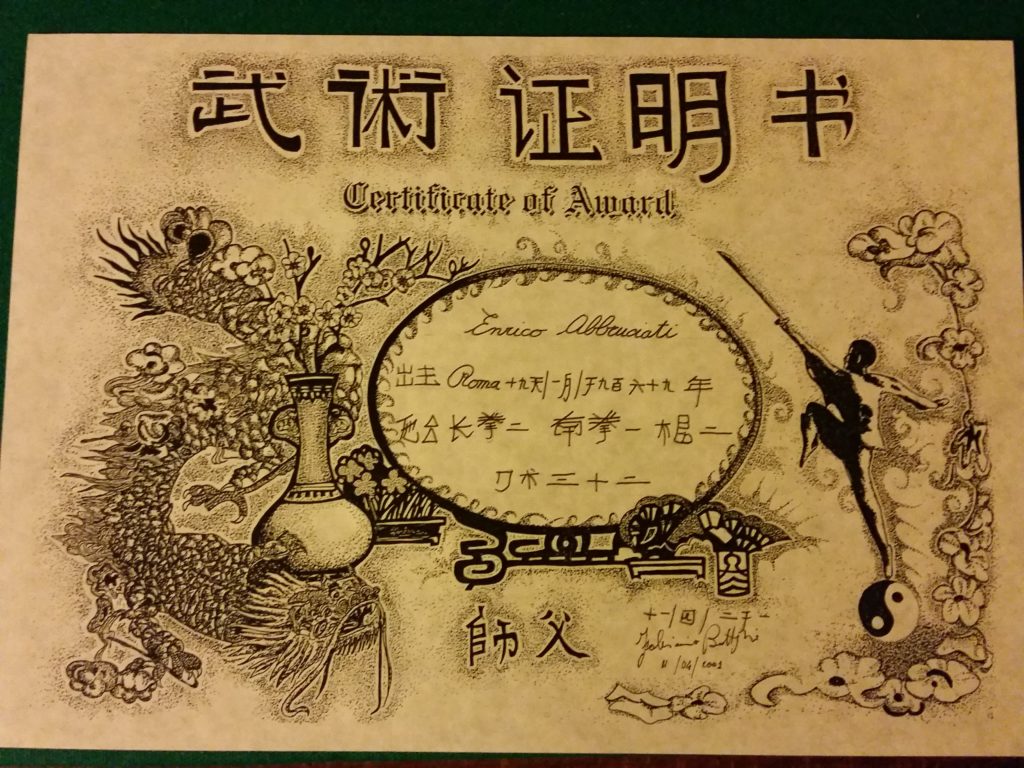 武術 证明书
Certificate of Award
Enrico Abbruciati
出主 Roma 十九天/一月/千九百六十九 年
他会长拳二 南拳一 棍二
刀术三十二
師父
十一/四/二千一
11/04/2001